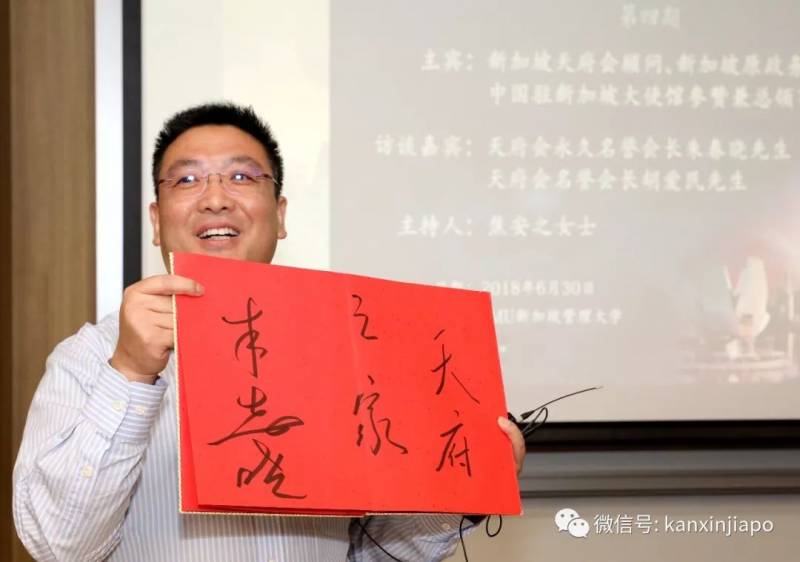 第四期
主宾：新加坡天府会顾问、新加坡原政务
中国驻新加坡大使馆参赞兼总领
访谈嘉宾：天府会永久名誉会长朱春晓先生
天府会名誉会长胡爱民先生
主持人：焦安之女士
2018年6月30日
MU新加坡管理大学
天府
之家
微信号: kanxinjiapo